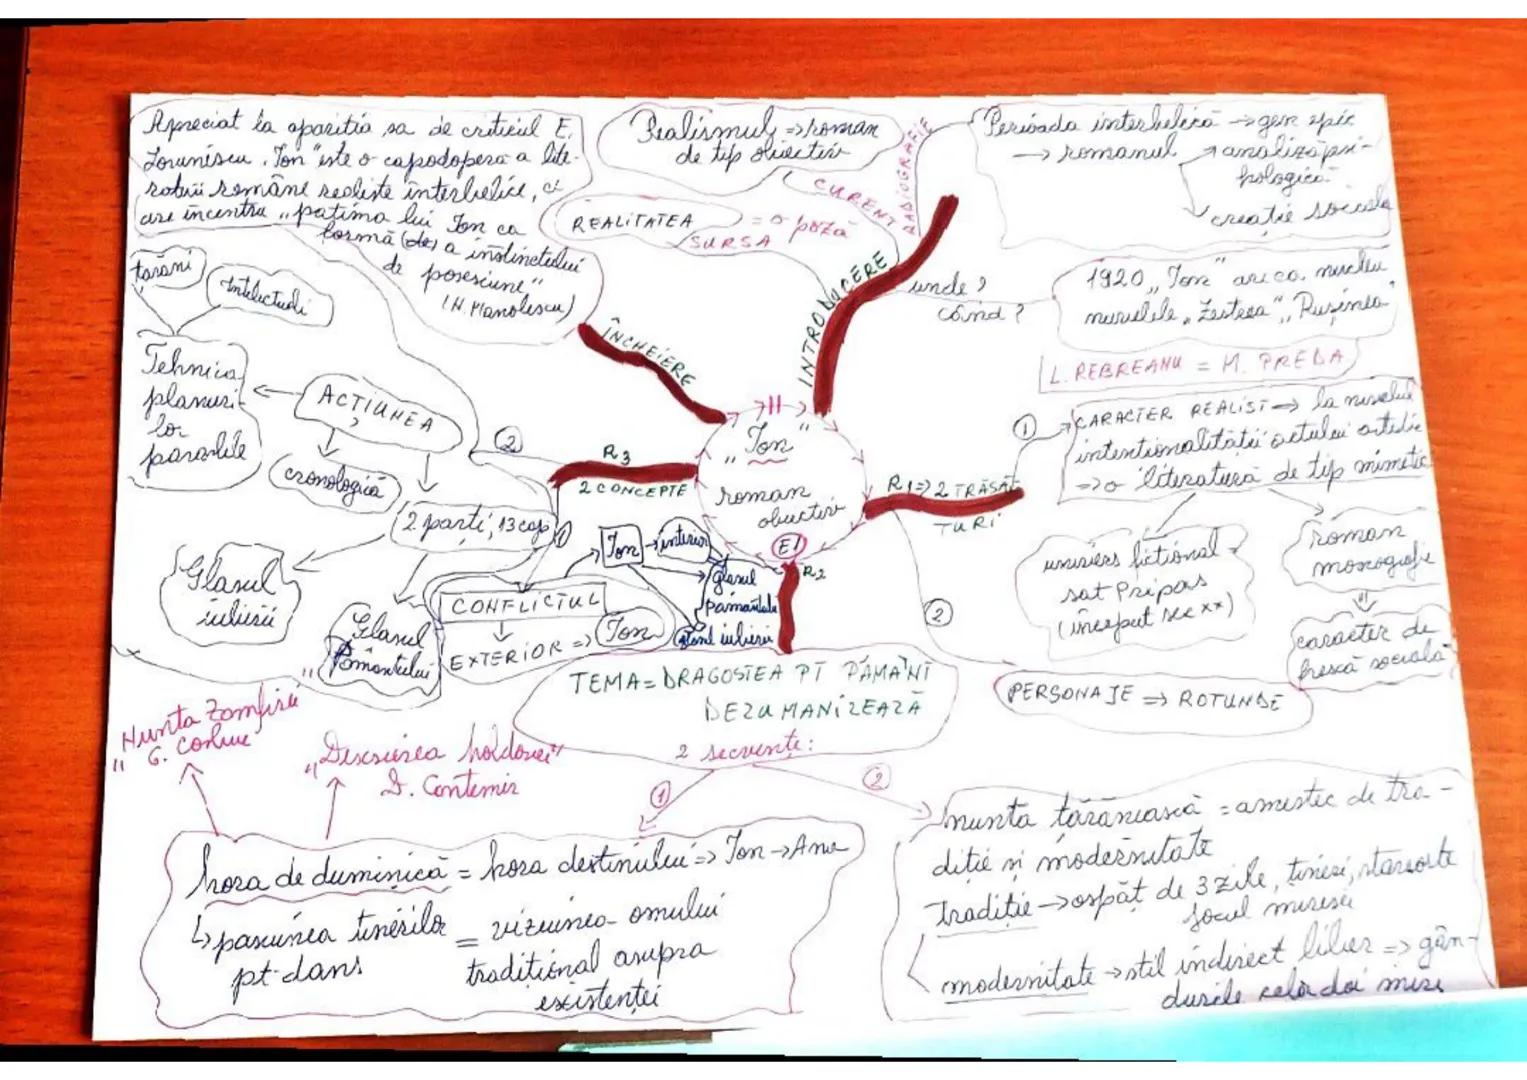 Apreciat la apariția sa de criticul E.
Lovinescu, „Ion" este o capodoperă a lite-
raturii române realiste interbelice, ce
are în centru „patima lui Ion ca
formă (de) a instinctului
de posesiune"
(N. Manolescu)
ÎNCHEIERE
Realismul => roman
de tip obiectiv
CURENT
RADIOGRAFIE
REALITATEA
SURSA
= o poză
INTRODUCERE
Perioada interbelică → gen epic
→ romanul → analiză psi-
hologică
creație socială
unde?
când?
1920 „Ion" are ca nucleu
nuvelele „Zestrea", „Rușinea"
L. REBREANU = M. PREDA
„Ion"
roman
obiectiv
E!
R1 => 2 TRĂSĂ-
TURI
1
CARACTER REALIST → la nivelul
intenționalității actului artistic
=> o literatură de tip mimetic
univers fictional =
sat Pripas
(început sec XX)
roman
monografie
caracter de
frescă socială
2
PERSONAJE => ROTUNDE
R2
TEMA = DRAGOSTEA PT PĂMÂNT
DEZUMANIZEAZĂ
2 secvențe:
1
hora de duminică = hora destinului => Ion → Ana
pasiunea tinerilor = viziunea omului
pt. dans
tradițional asupra
existenței
„Nunta Zamfirei"
G. Coșbuc
„Descrierea Moldovei"
D. Cantemir
2
nunta țărănească = amestec de tra-
diție și modernitate
Tradiție → ospăț de 3 zile, tineri, staroste
jocul miresei
modernitate → stil indirect liber => gân-
durile celor doi miri
R3
2 CONCEPTE
1
CONFLICTUL
Ion → interior
glasul
pământului
glasul iubirii
EXTERIOR => Ion
2
ACȚIUNEA
țărani
Intelectuali
Tehnica
planuri-
lor
paralele
cronologică
2 părți, 13 cap
Glasul
iubirii
„Glasul
Pământului